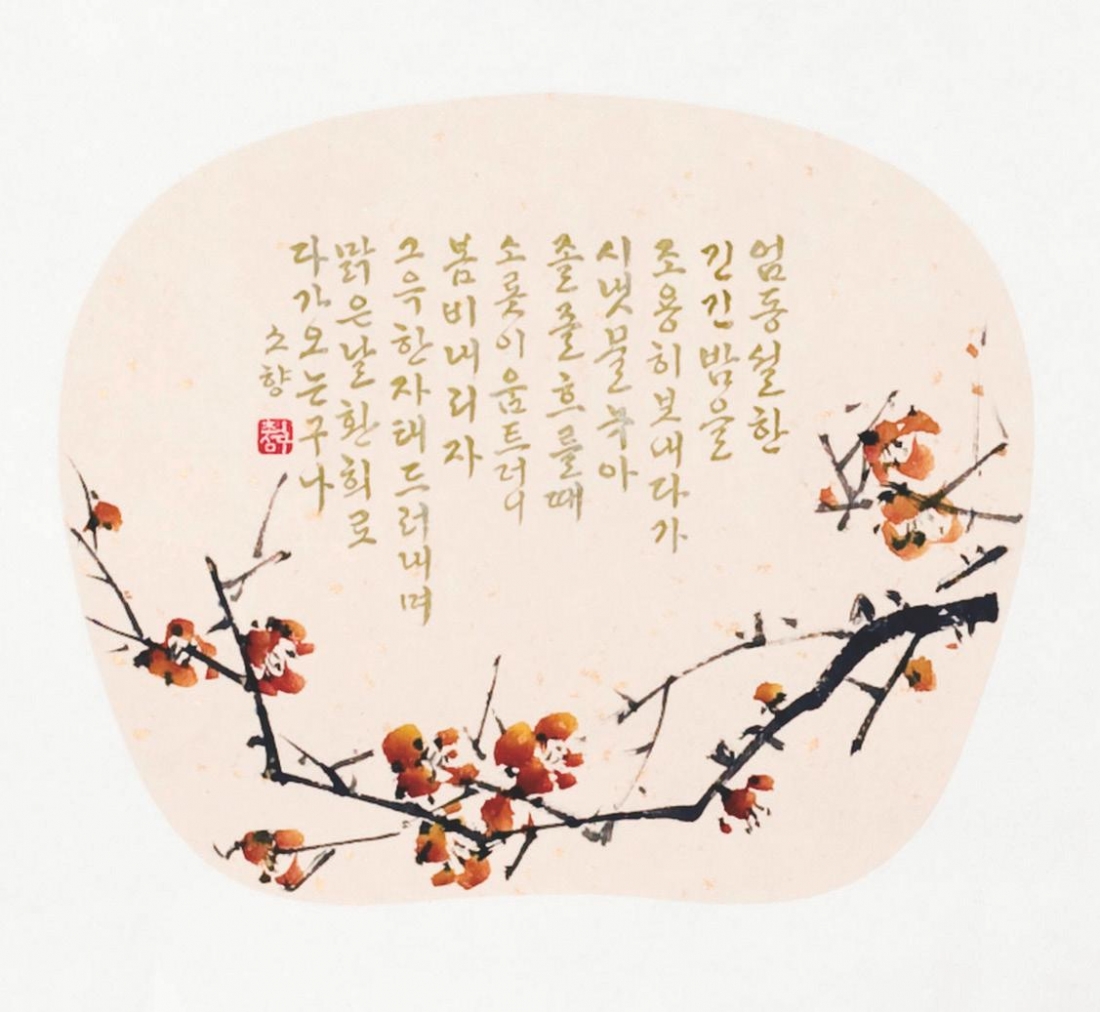 엄동설한
긴긴밤을
조용히보내다가
시냇물녹아
졸졸흐를때
소롯이움트더니
봄비내리자
그윽한자태드러내며
맑은날환희로
다가오는구나